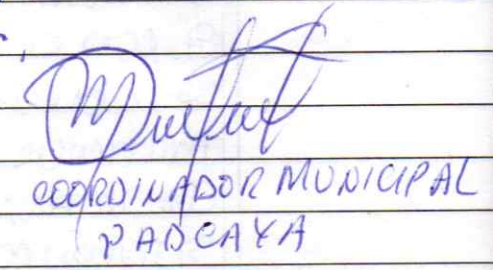 COORDINADOR MUNICIPAL
PADCAYA